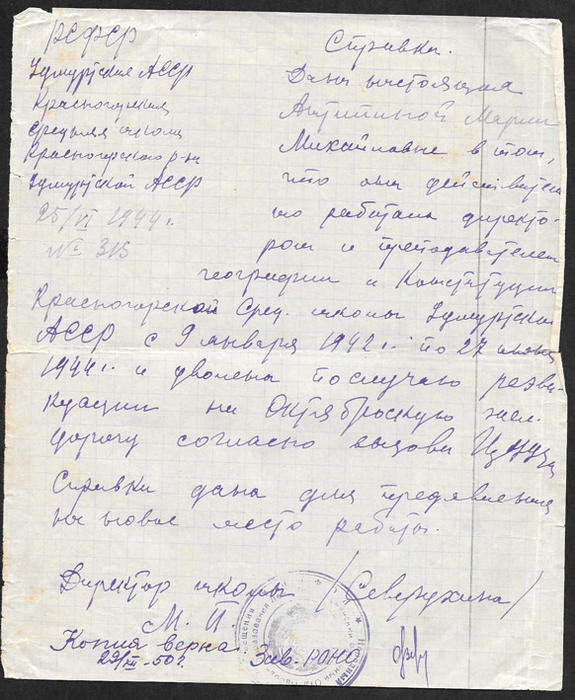 РСФСР
Удмуртская АССР
Красногорская
средняя школа
Красногорского р-на
Удмуртской АССР
25/VI 1944 г.
№ 313
Справка.
Дана настоящая
Антипиной Марии
Михайловне в том,
что она действитель
но работала директо-
ром и преподавателем
географии и Конституции
Красногорской Сред. школы Удмуртской
АССР с 9 января 1942 г. по 27 июня
1944 г. и уволена по случаю реэва-
куации на Октябрьскую жел.
дорогу согласно вызова
Справка дана для предъявления
на новое место работы.
Директор школы /Северухина/
М. П.
Копия верна.
29/XII-50 г. Зав. РОНО